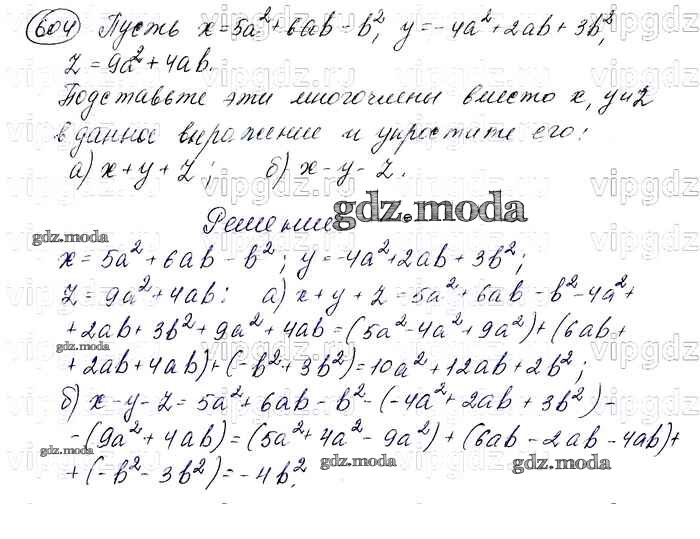 604 Пусть x=5a²+6ab-b², y=-4a²+2ab+3b²,
z=9a²+4ab.
Подставьте эти многочлены вместо x, y и z
в данное выражение и упростите его:
а) x+y+z; б) x-y-z.
Решение
gdz.moda
gdz.moda
x=5a²+6ab-b²; y=-4a²+2ab+3b²;
z=9a²+4ab: а) x+y+z=5a²+6ab-b²-4a²+
+2ab+3b²+9a²+4ab=(5a²-4a²+9a²)+(6ab+
gdz.moda
+2ab+4ab)+(-b²+3b²)=10a²+12ab+2b²;
б) x-y-z=5a²+6ab-b²-(-4a²+2ab+3b²)-
-(9a²+4ab)=(5a²+4a²-9a²)+(6ab-2ab-4ab)+
gdz.moda
gdz.moda
+(-b²-3b²)=-4b².
gdz.moda